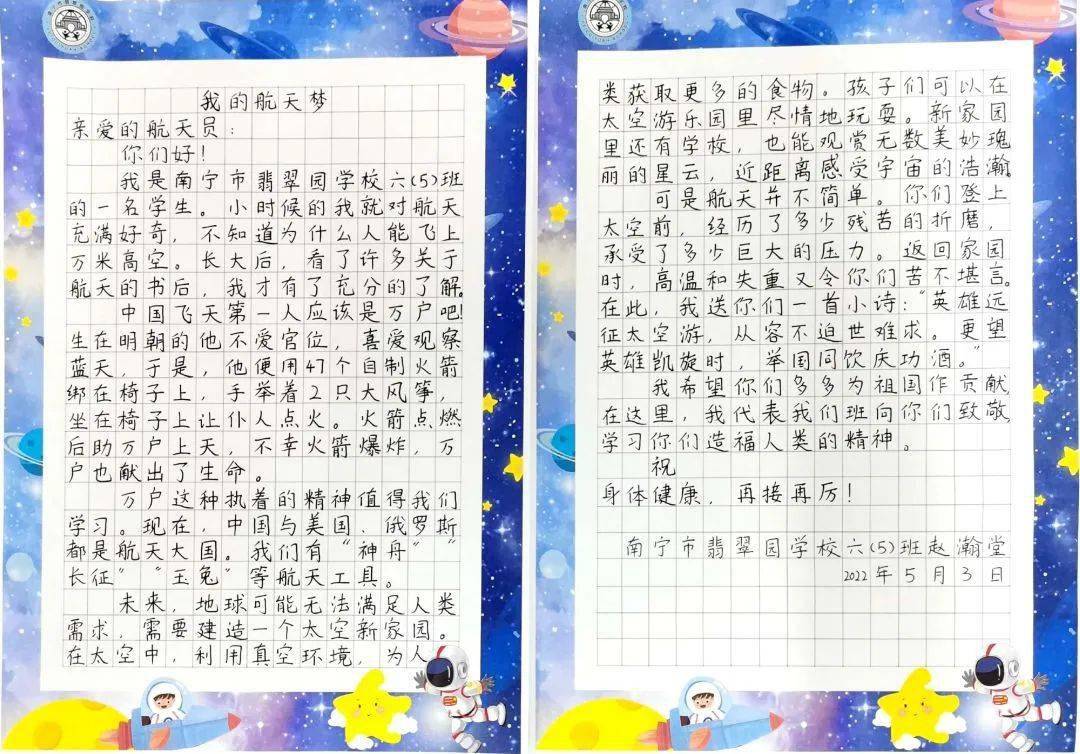 我的航天梦
亲爱的航天员:
你们好!
我是南宁市翡翠园学校六(5)班
的一名学生。小时候的我就对航天
充满好奇,不知道为什么人能飞上
万米高空。长大后,看了许多关于
航天的书后,我才有了充分的了解。
中国飞天第一人应该是万户吧!
生在明朝的他不爱官位,喜爱观察
蓝天,于是,他便用47个自制火箭
绑在椅子上,手举着2只大风筝,
坐在椅子上让仆人点火。火箭点燃
后助万户上天,不幸火箭爆炸,万
户也献出了生命。
万户这种执着的精神值得我们
学习。现在,中国与美国、俄罗斯
都是航天大国。我们有“神舟”“
长征”“玉兔”等航天工具。
未来,地球可能无法满足人类
需求,需要建造一个太空新家园。
在太空中,利用真空环境,为人
类获取更多的食物。孩子们可以在
太空游乐园里尽情地玩耍。新家园
里还有学校,也能观赏无数美妙瑰
丽的星云,近距离感受宇宙的浩瀚。
可是航天并不简单。你们登上
太空前,经历了多少残苦的折磨,
承受了多少巨大的压力。返回家园
时,高温和失重又令你们苦不堪言。
在此,我送你们一首小诗:“英雄远
征太空游,从容不迫世难求。更望
英雄凯旋时,举国同饮庆功酒。”
我希望你们多多为祖国作贡献,
在这里,我代表我们班向你们致敬,
学习你们造福人类的精神。
祝
身体健康,再接再厉!
南宁市翡翠园学校六(5)班赵瀚堂
2022年5月3日